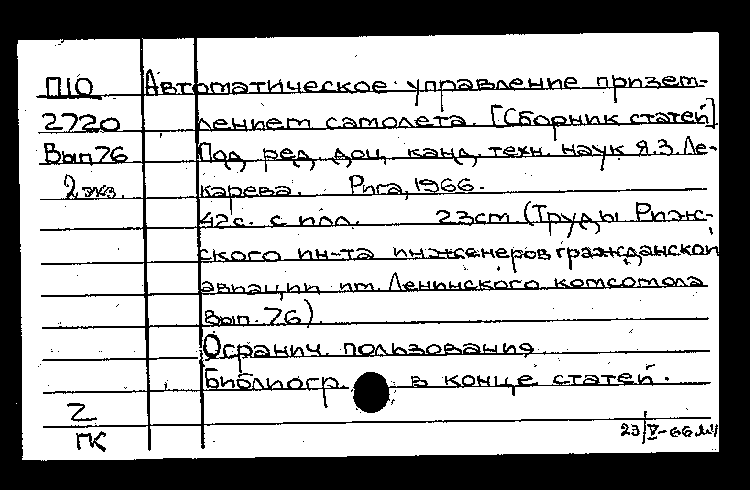 П10 Автоматическое управление призем-
2720 лением самолета. [Сборник статей]
Вып 76 Под ред. доц. канд. техн. наук Я.З. Ле-
2 экз. карева. Рига, 1966.
42с. с илл. 23см (Труды Рижс-
ского ин-та инженеров гражданской
авиации им. Ленинского комсомола
вып. 76)
Огранич. пользования
Библиогр. в конце статей.
2
ГК
23/V-66